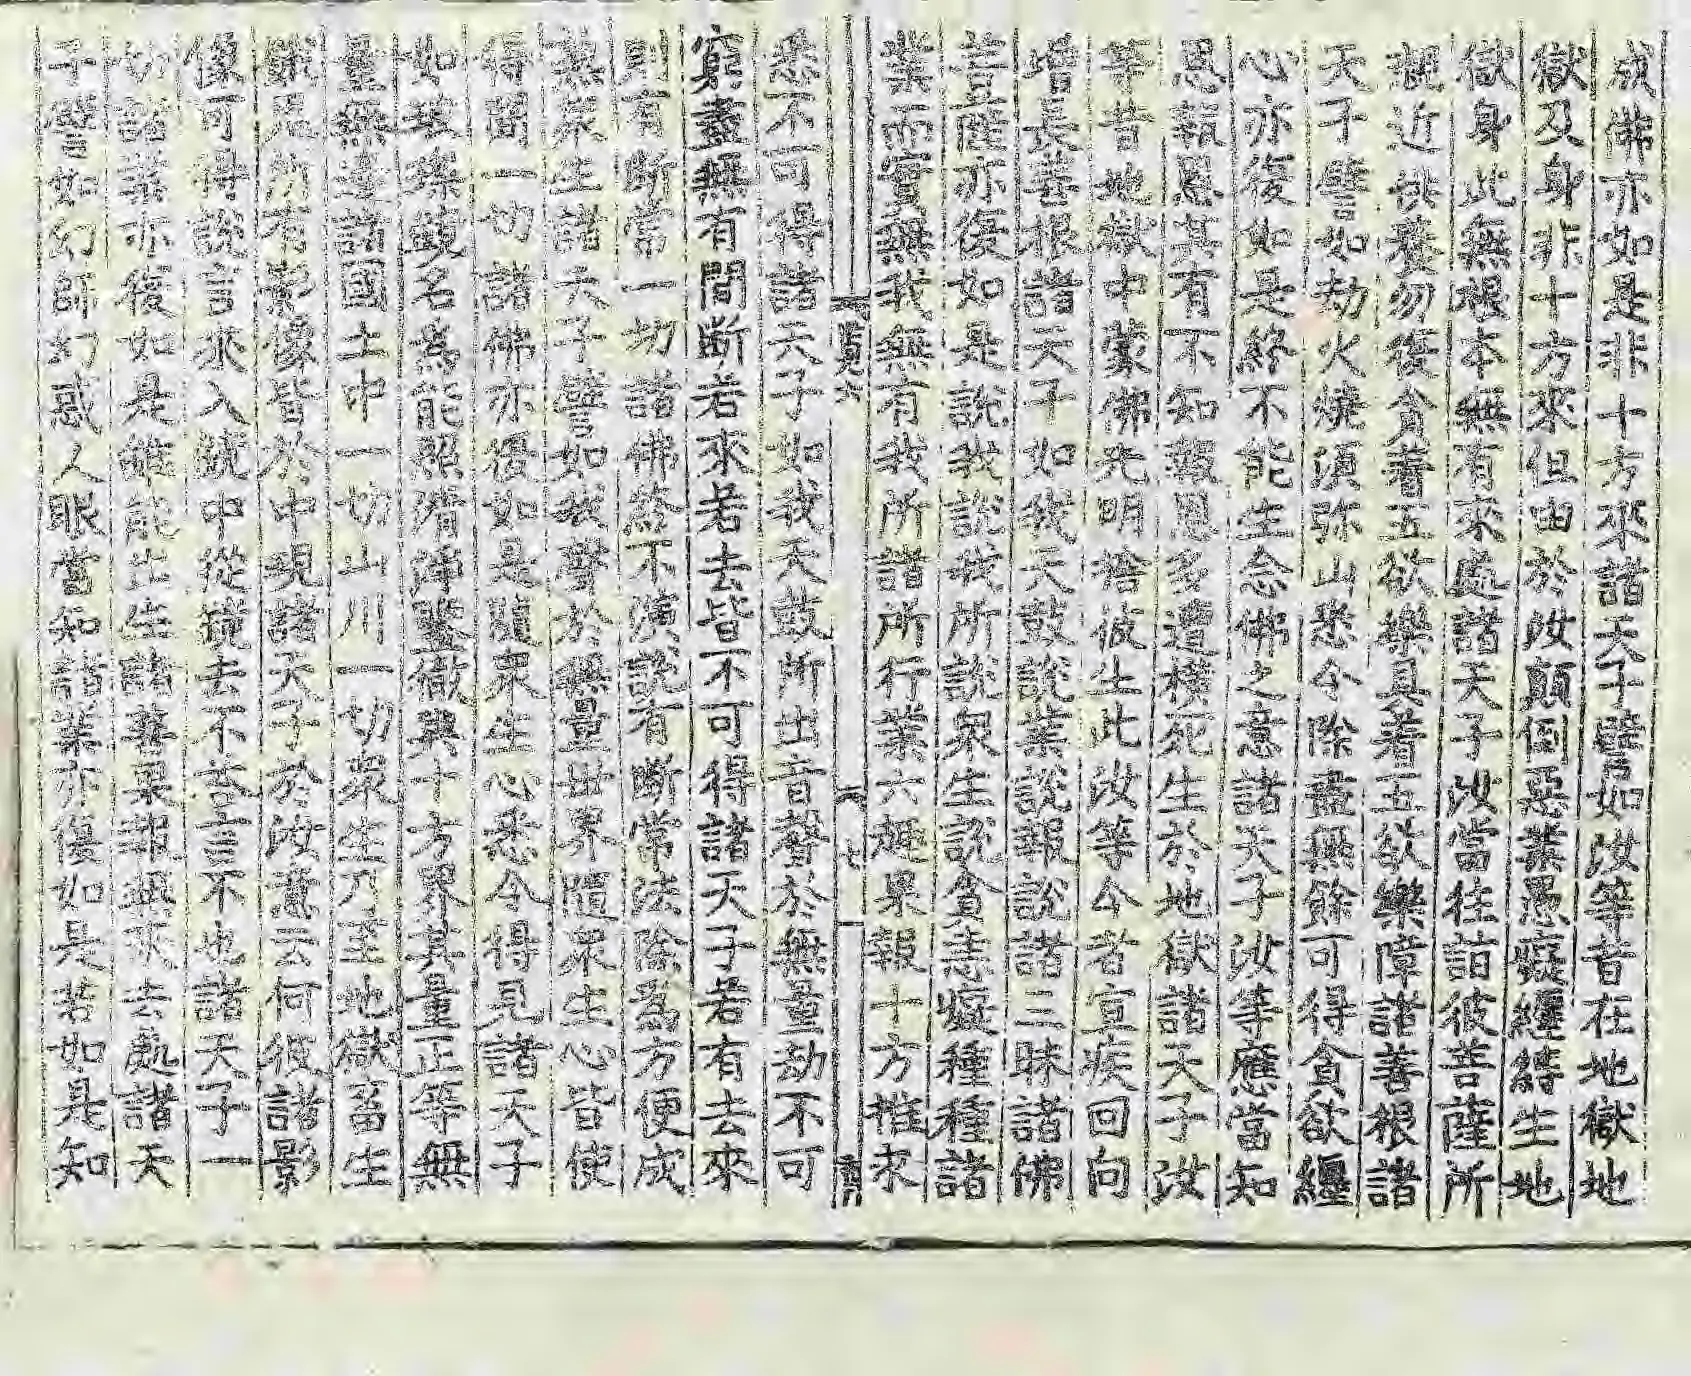 成佛亦如是非十方來諸天子譬如汝等昔在地獄地
獄及身非十方來但由於汝顛倒惡業愚癡纏縛生地
獄身此無根本無有來處諸天子汝當往詣彼菩薩所
親近供養勿復貪著五欲樂具著五欲樂障諸善根諸
天子譬如劫火燒須弥山悉令除盡無餘可得貪欲纏
心亦復如是終不能生念佛之意諸天子汝等應當知
恩報恩其有不知報恩多遭橫死生於地獄諸天子汝
等昔地獄中蒙佛光明捨彼生此汝等今者宜疾回向
增長善根諸天子如我天鼓說業說報說諸三昧諸佛
菩薩亦復如是說我說我所說衆生說貪恚癡種種諸
業而實無我無有我所諸所行業六趣果報十方推求
悉不可得諸天子如我天鼓所出音聲於無量劫不可
窮盡無有間斷若來若去皆不可得諸天子若有去來
則有斷常一切諸佛終不演說有斷常法除為方便成
熟衆生諸天子譬如我聲於無量世界隨眾生心皆使
得聞一切諸佛亦復如是隨眾生心悉令得見諸天子
如玻瓈鏡名為能照清淨鑒徹與十方界其量正等無
量無邊諸國土中一切山川一切眾生乃至地獄畜生
餓鬼所有影像皆於中現諸天子於汝意云何彼諸影
像可得說言來入鏡中從鏡去不荅言不也諸天子一
切諸業亦復如是雖能出生諸善果報無來去處諸天
子譬如幻師幻惑人眼當知諸業亦復如是若如是知